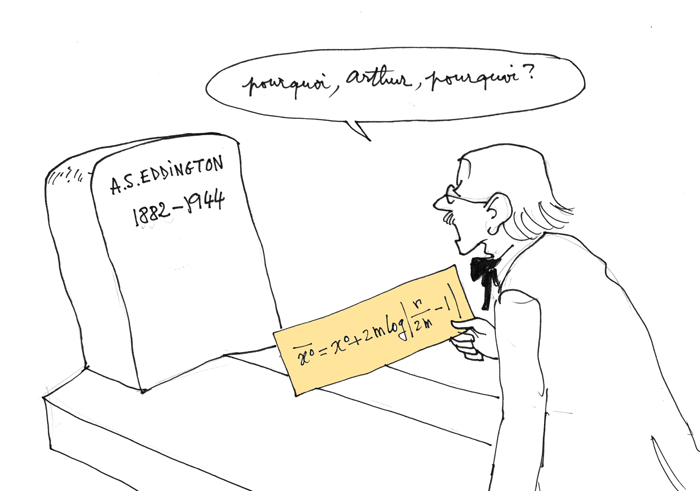 pourquoi, Arthur, pourquoi?
A.S. EDDINGTON
1882-1944
x̄° = x° + 2m log |r/2m - 1|